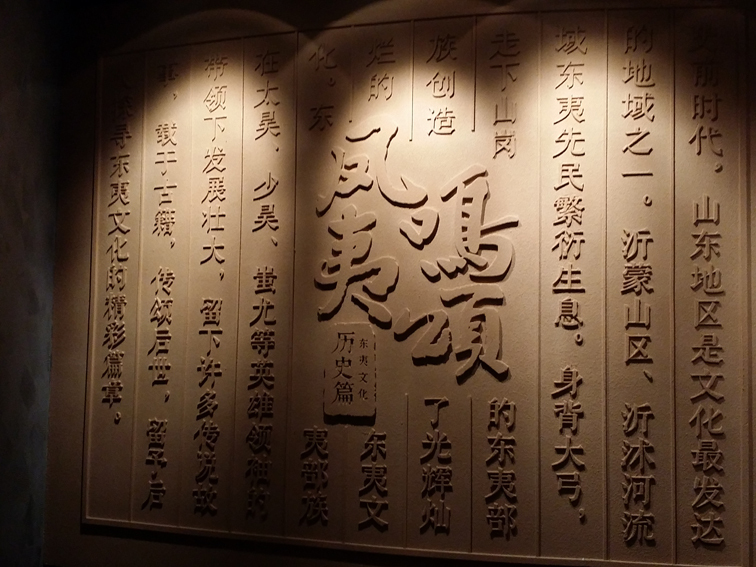 史前时代，山东地区是文化最发达
的地域之一。沂蒙山区、沂沭河流
域东夷先民繁衍生息。身背大弓，
走下山岗的东夷部
族创造了光辉灿
烂的东夷文
化。东夷部族
在太昊、少昊、蚩尤等英雄领袖的
带领下发展壮大，留下许多传说故
事，载于古籍，传颂后世，留予后
寻东夷文化的精彩篇章。
凤鳴
夷頌
东夷文化
历史篇